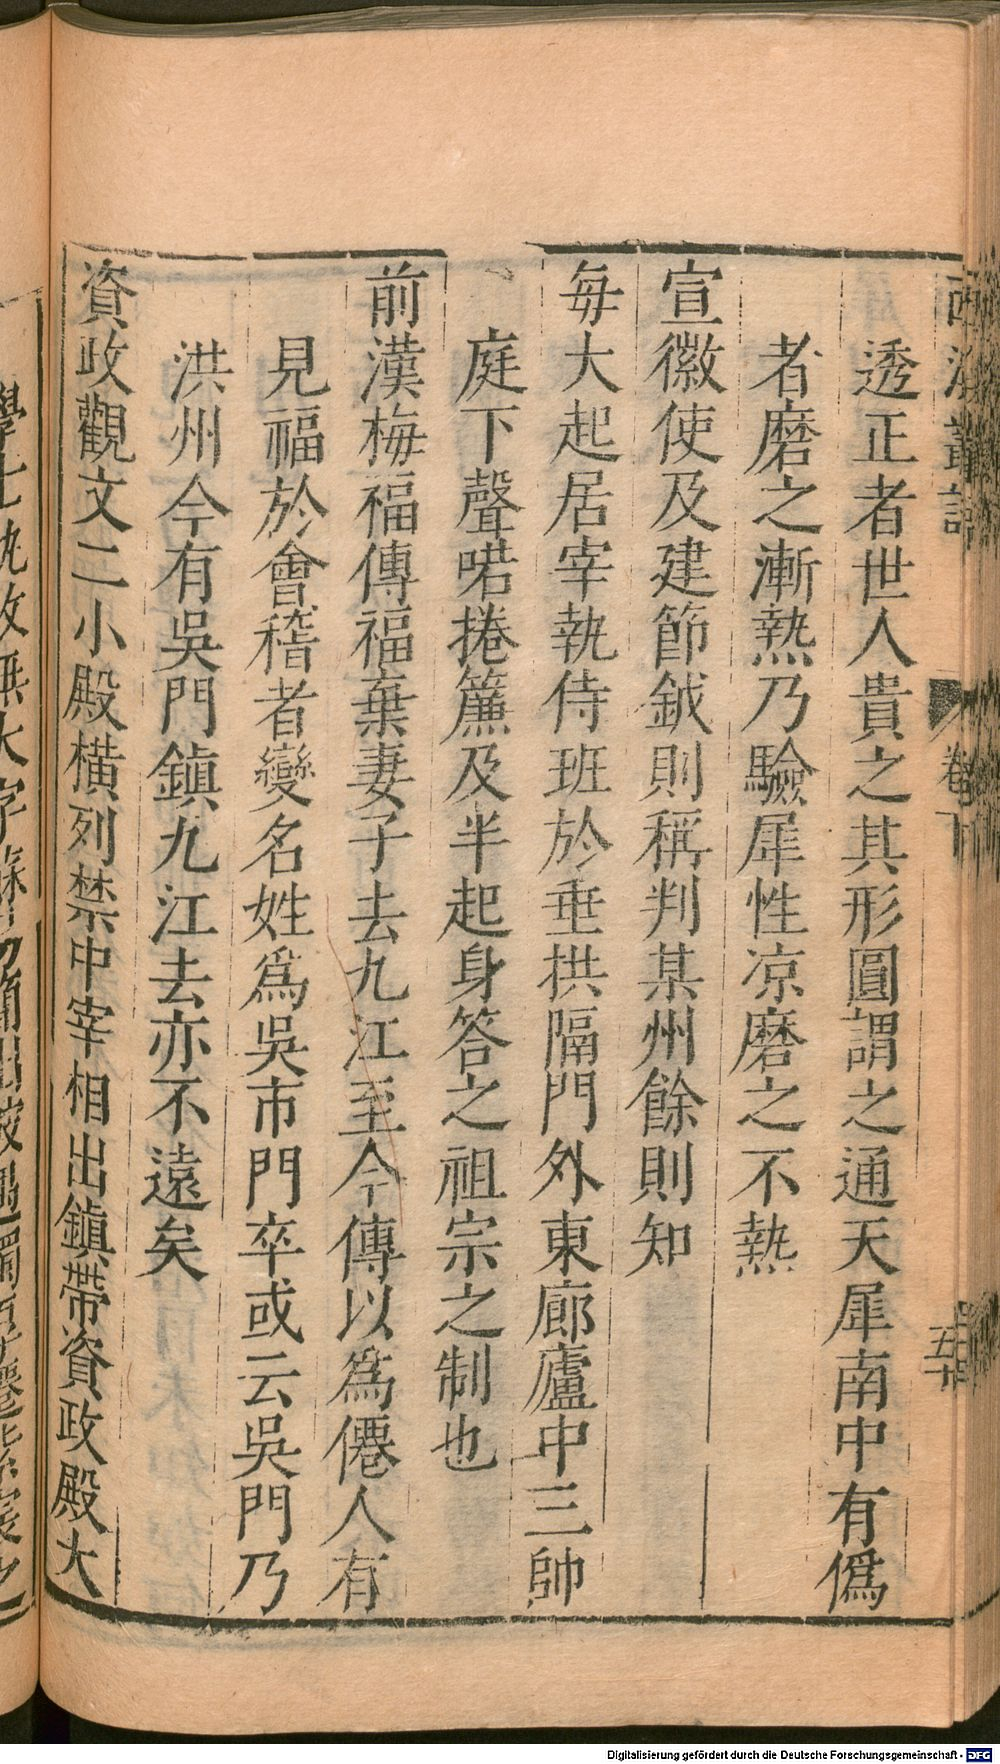 西溪叢語
卷下
透正者世人貴之其形圓謂之通天犀南中有僞
者磨之漸熱乃驗犀性凉磨之不熱
宣徽使及建節鉞則稱判某州餘則知
每大起居宰執侍班於垂拱隔門外東廊廬中三帥
庭下聲喏捲簾及半起身答之祖宗之制也
前漢梅福傳福棄妻子去九江至今傳以爲僊人有
見福於會稽者變名姓爲吳市門卒或云吳門乃
洪州今有吳門鎮九江去亦不遠矣
資政觀文二小殿橫列禁中宰相出鎮帶資政殿大
Digitalisierung gefördert durch die Deutsche Forschungsgemeinschaft - DFG